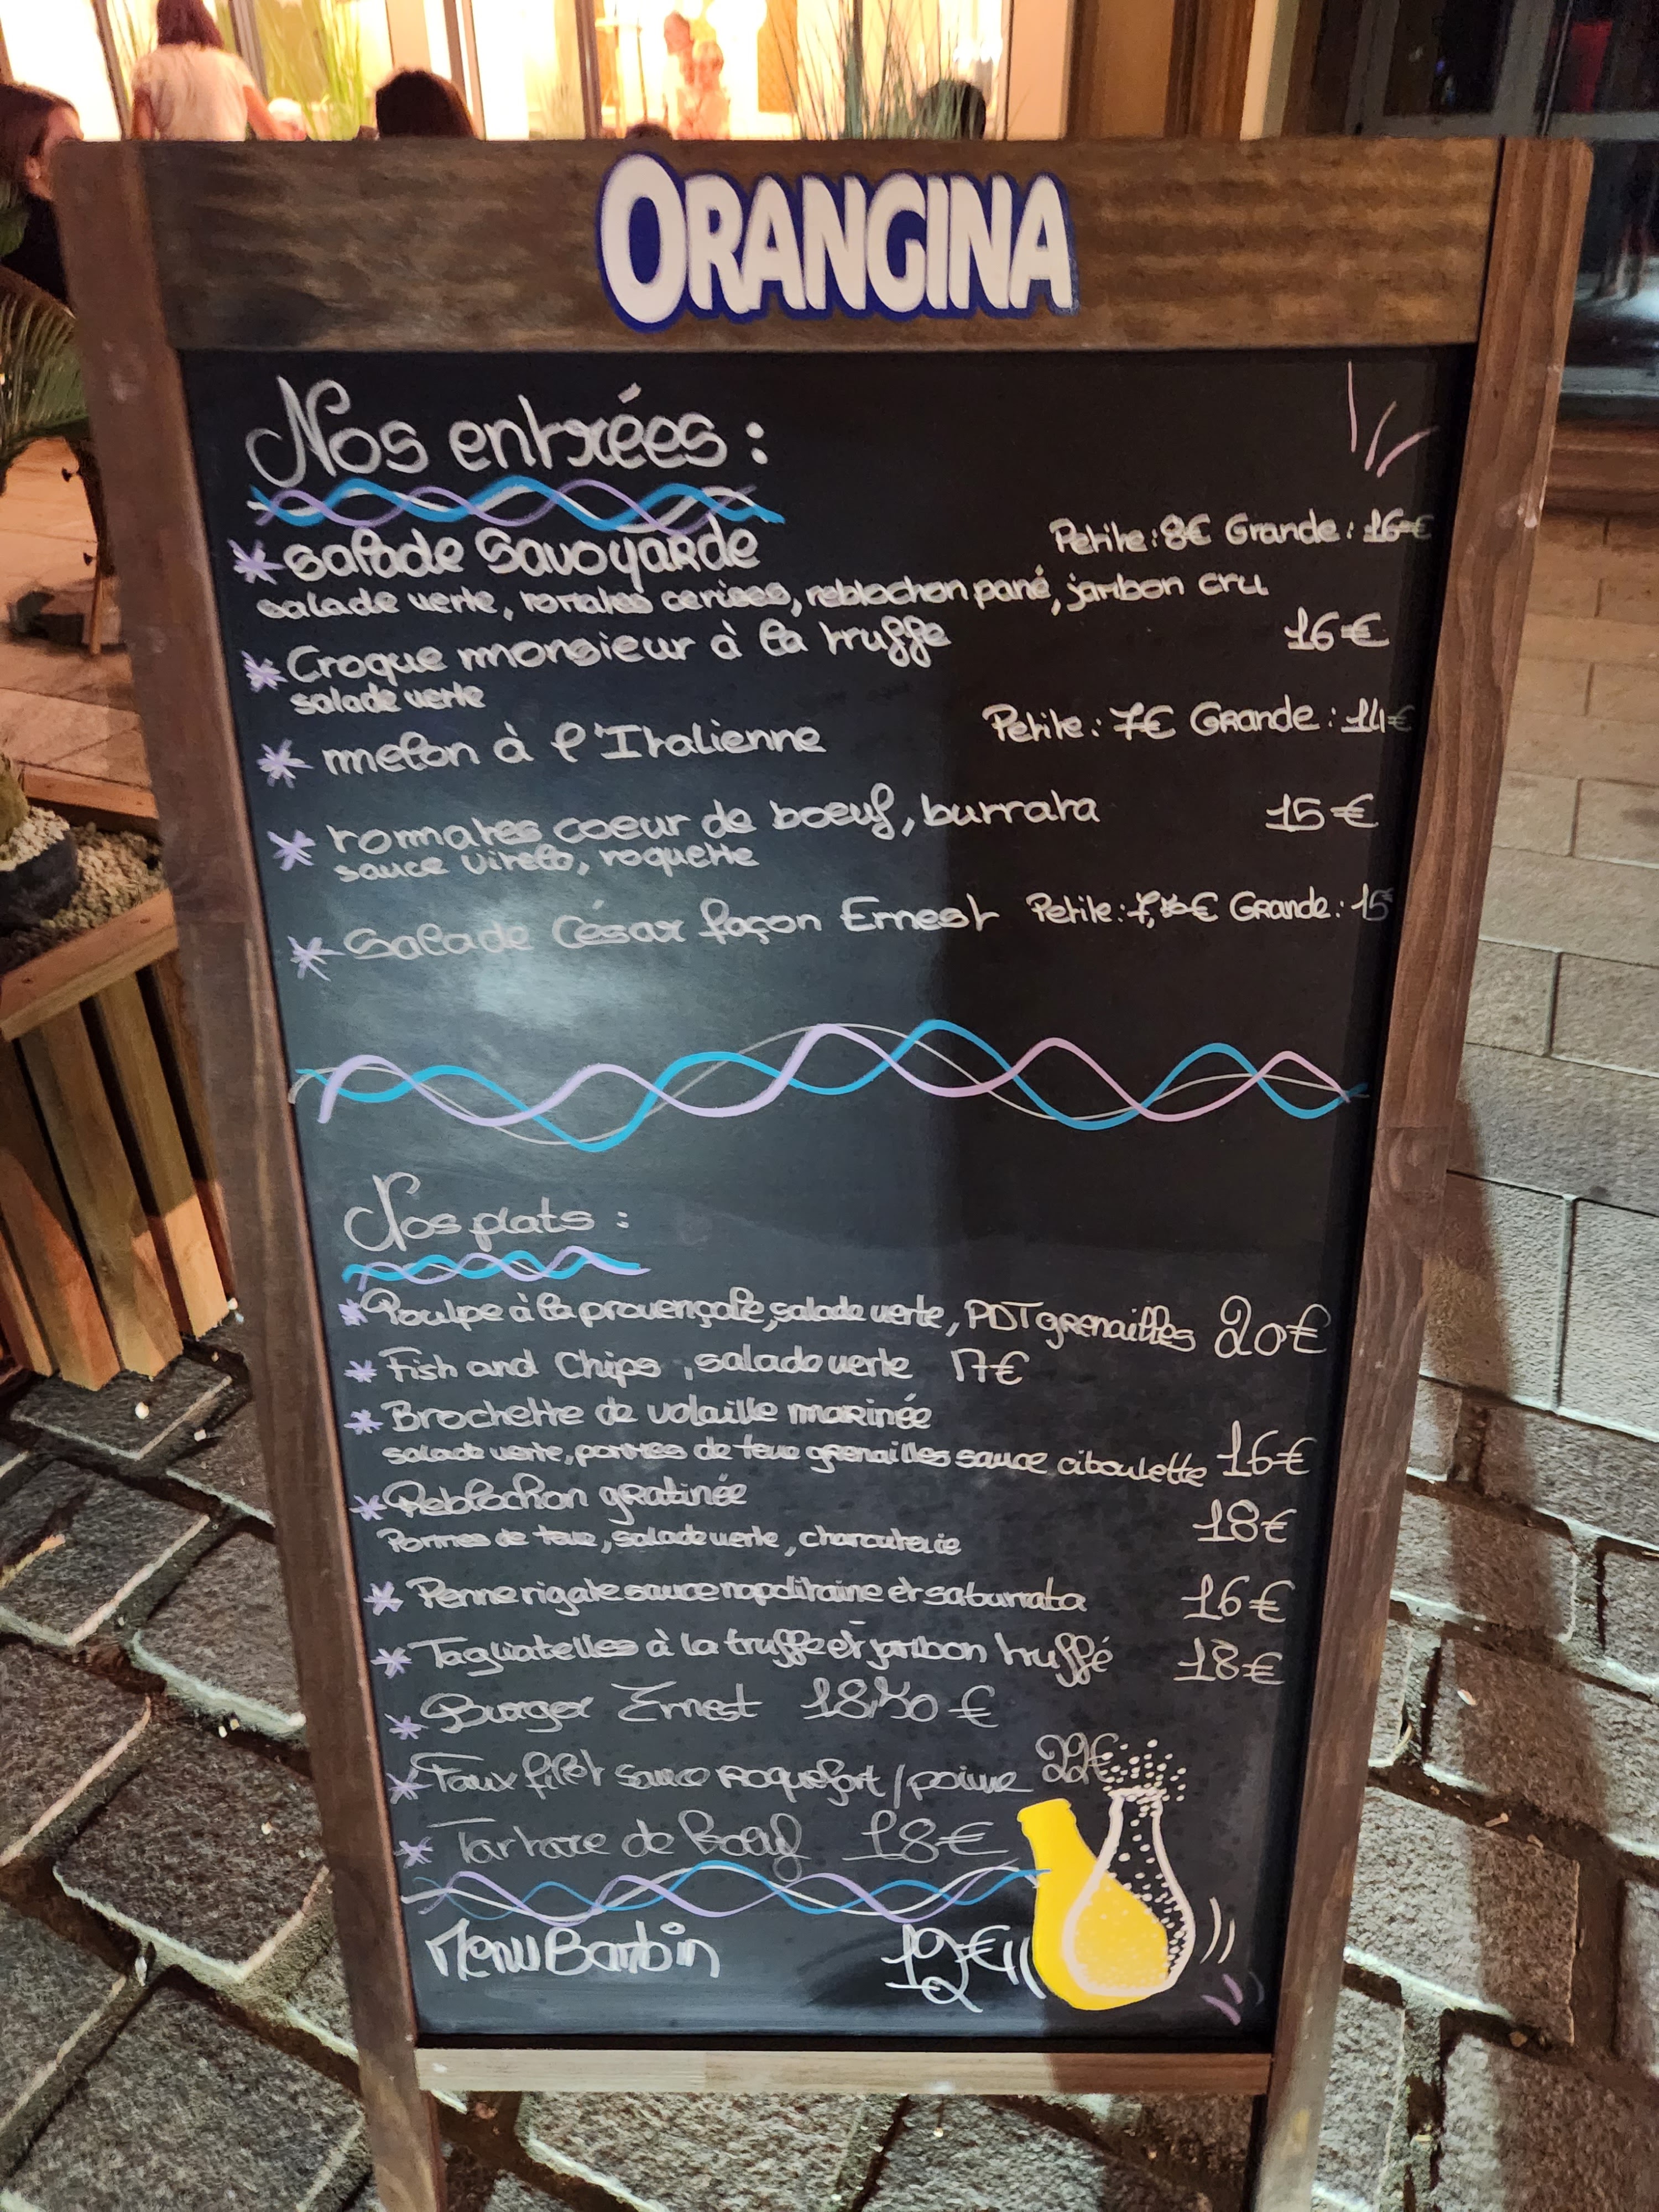 ORANGINA
Nos entrées :
* Salade Savoyarde Petite : 8€ Grande : 16€
salade verte, tomates cerises, reblochon pané, jambon cru
* Croque monsieur à la truffe 16€
salade verte
* melon à l'Italienne Petite : 7€ Grande : 14€
* tommates coeur de boeuf, burrata 15€
sauce , roquette
* Salade César façon Ernest Petite : € Grande : 15
Nos plats :
* Poulpe à la provençale, salade verte, PDT grenailles 20€
* Fish and Chips, salade verte 17€
* Brochette de volaille marinée
salade verte, pommes de terre grenailles sauce ciboulette 16€
* Reblochon gratinée
Pommes de terre, salade verte, charcuterie 18€
* Penne rigate sauce napolitaine et sa burrata 16€
* Tagliatelles à la truffe et jambon truffé 18€
* Burger Ernest 18,50 €
* Faux filet sauce roquefort / poivre 22€
* Tartare de Boeuf 18€
Menu Bambin 12€